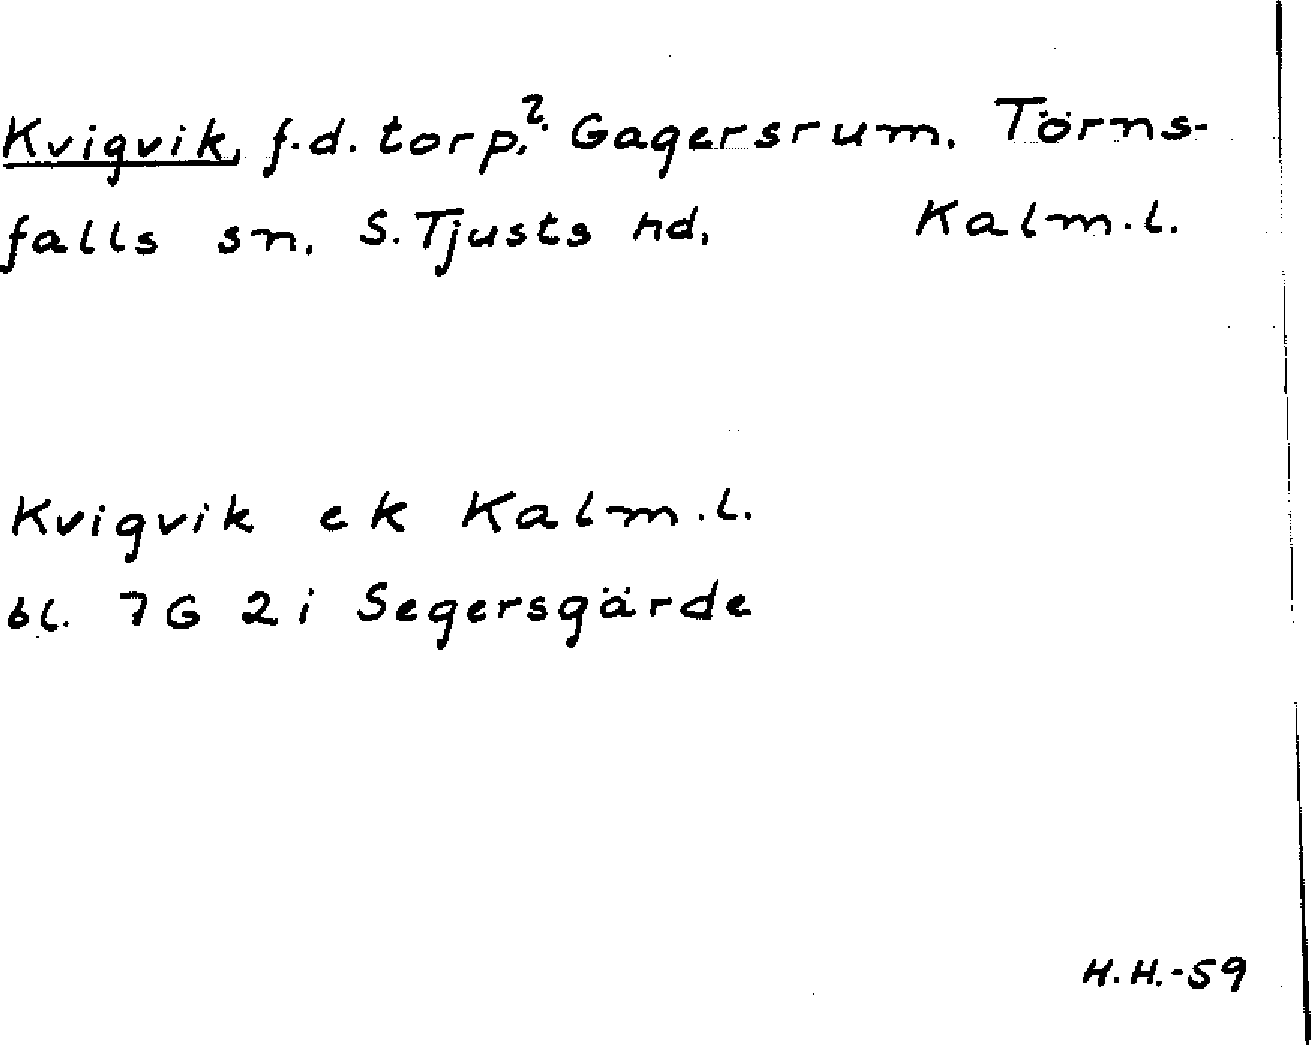 Kvigvik, f.d. torp,? Gagersrum, Törns-
falls sn, S. Tjusts hd, Kalm.l.
Kvigvik ek Kalm.l.
bl. 7G 2i Segersgärde
H.H.-59